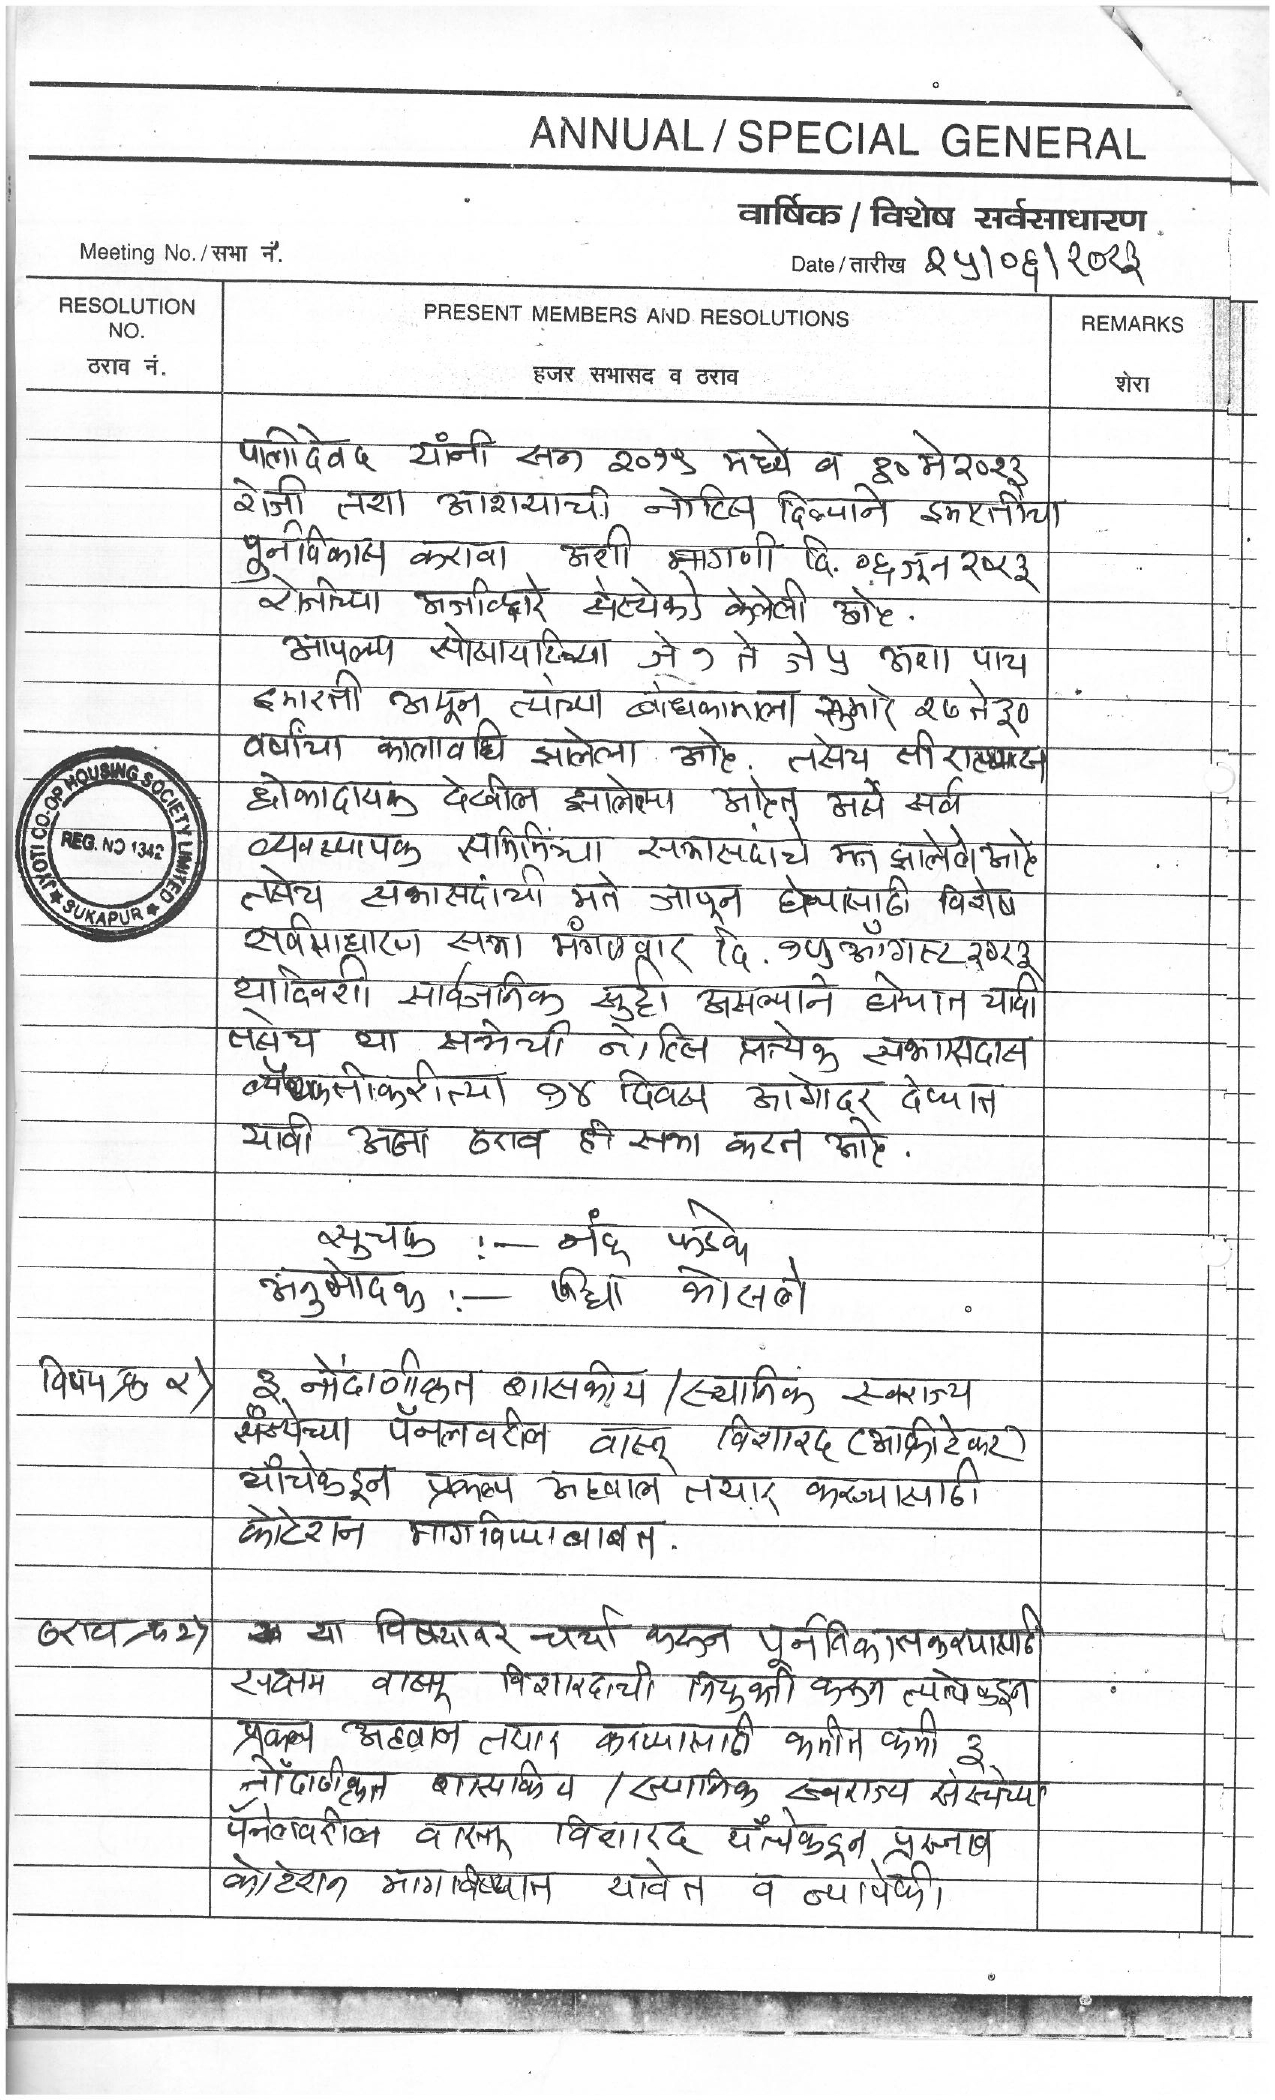 ANNUAL / SPECIAL GENERAL
वार्षिक / विशेष सर्वसाधारण
Meeting No. / सभा नं.
Date / तारीख २५/०६/२०२३
RESOLUTION NO.
ठराव नं.
PRESENT MEMBERS AND RESOLUTIONS
हजर सभासद व ठराव
REMARKS
शेरा
पालीदेवद यांनी सन २०१९ मध्ये व ३० मे २०२३
रोजी तशा आशयाची नोटिस दिल्याने इमारतींचा
पुर्नविकास करावा अशी मागणी दि. ०६ जून २०२३
रोजीच्या अर्जाव्दारे संस्थेकडे केलेली आहे.
आपल्या सोसायटिच्या जे १ ते जे ५ अशा पाच
इमारती असून त्यांच्या बांधकामाला सुमारे २७ ते ३०
वर्षांचा कालावधि झालेला आहे. तसेच ती
धोकादायक देखील झालेल्या आहेत असे सर्व
व्यवस्थापक समितिच्या सभासदांचे मत झालेले आहे
तसेच सभासदांची मते जाणून घेण्यासाठी विशेष
सर्वसाधारण सभा मंगळवार दि. १५ ऑगस्ट २०२३
यादिवशी सार्वजनिक सुट्टी असल्याने घेण्यात यावी
तसेच या सभेची नोटिस प्रत्येक सभासदास
व्यैयक्तीकरीत्या १४ दिवस आगोदर देण्यात
यावी असा ठराव ही सभा करत आहे.
सुचक :- नंदू फडके
अनुमोदक :- भोसले
JYOTI CO.OP HOUSING SOCIETY LIMITED
REG. NO 1342
SUKAPUR
विषय क्र २) ३ नोंदणीकृत शासकीय / स्थानिक स्वराज्य
संस्थेच्या पॅनलवरील वास्तू विशारद (आर्कीटेक्ट)
यांचेकडून प्रकल्प अहवाल तयार करण्यासाठी
कोटेशन मागविण्याबाबत.
ठराव क्र २) या विषयावर चर्चा करून पुर्नविकास करण्यासाठी
सक्षम वास्तू विशारदाची नियुक्ती करून त्यांचेकडून
प्रकल्प अहवाल तयार करण्यासाठी कमीत कमी ३
नोंदणीकृत शासकिय / स्थानिक स्वराज्य संस्थेच्या
पॅनेलवरील वास्तू विशारद यांचेकडून प्रस्ताव
कोटेशन मागविण्यात यावेत व त्यापैकी